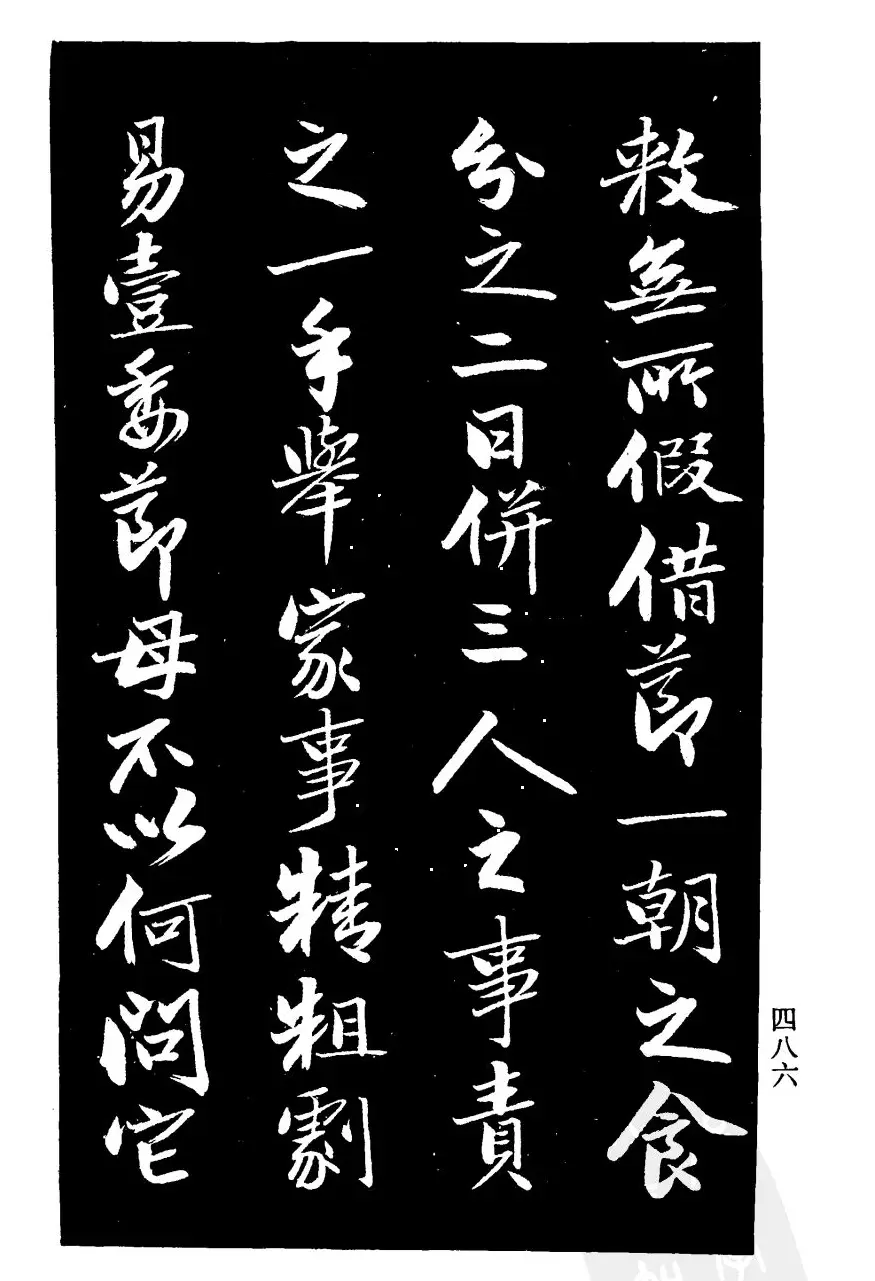 敕無所假借節一朝之食
分之二日併三人之事責
之一手舉家事精粗劇
易壹委節母不以何問它
四八六